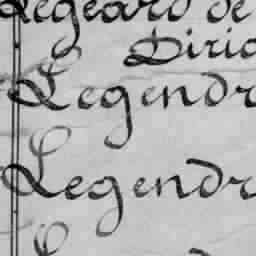 Legeard de
Diric
Legendr
Legendr